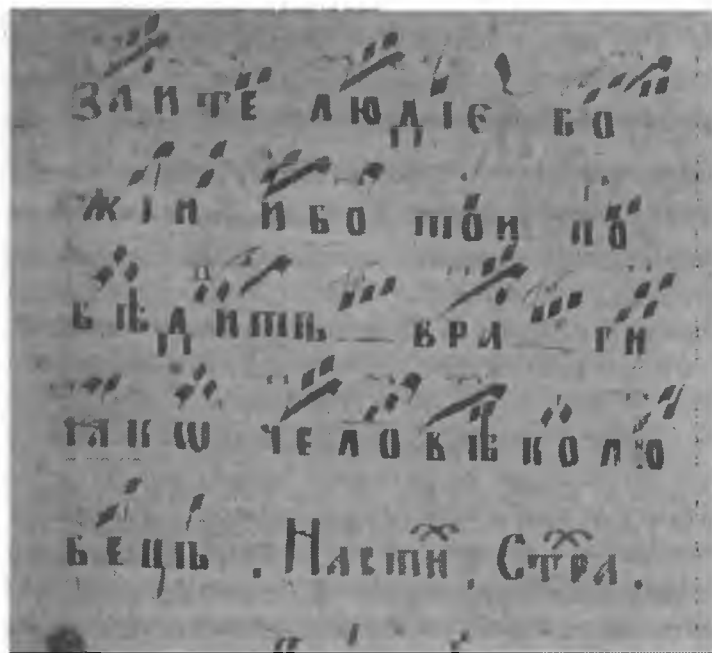 заите людїе бо
жїи ибо тои по
бѣдитъ вра ги
ꙗкѡ человѣколю
бецъ . Насти . Стра .